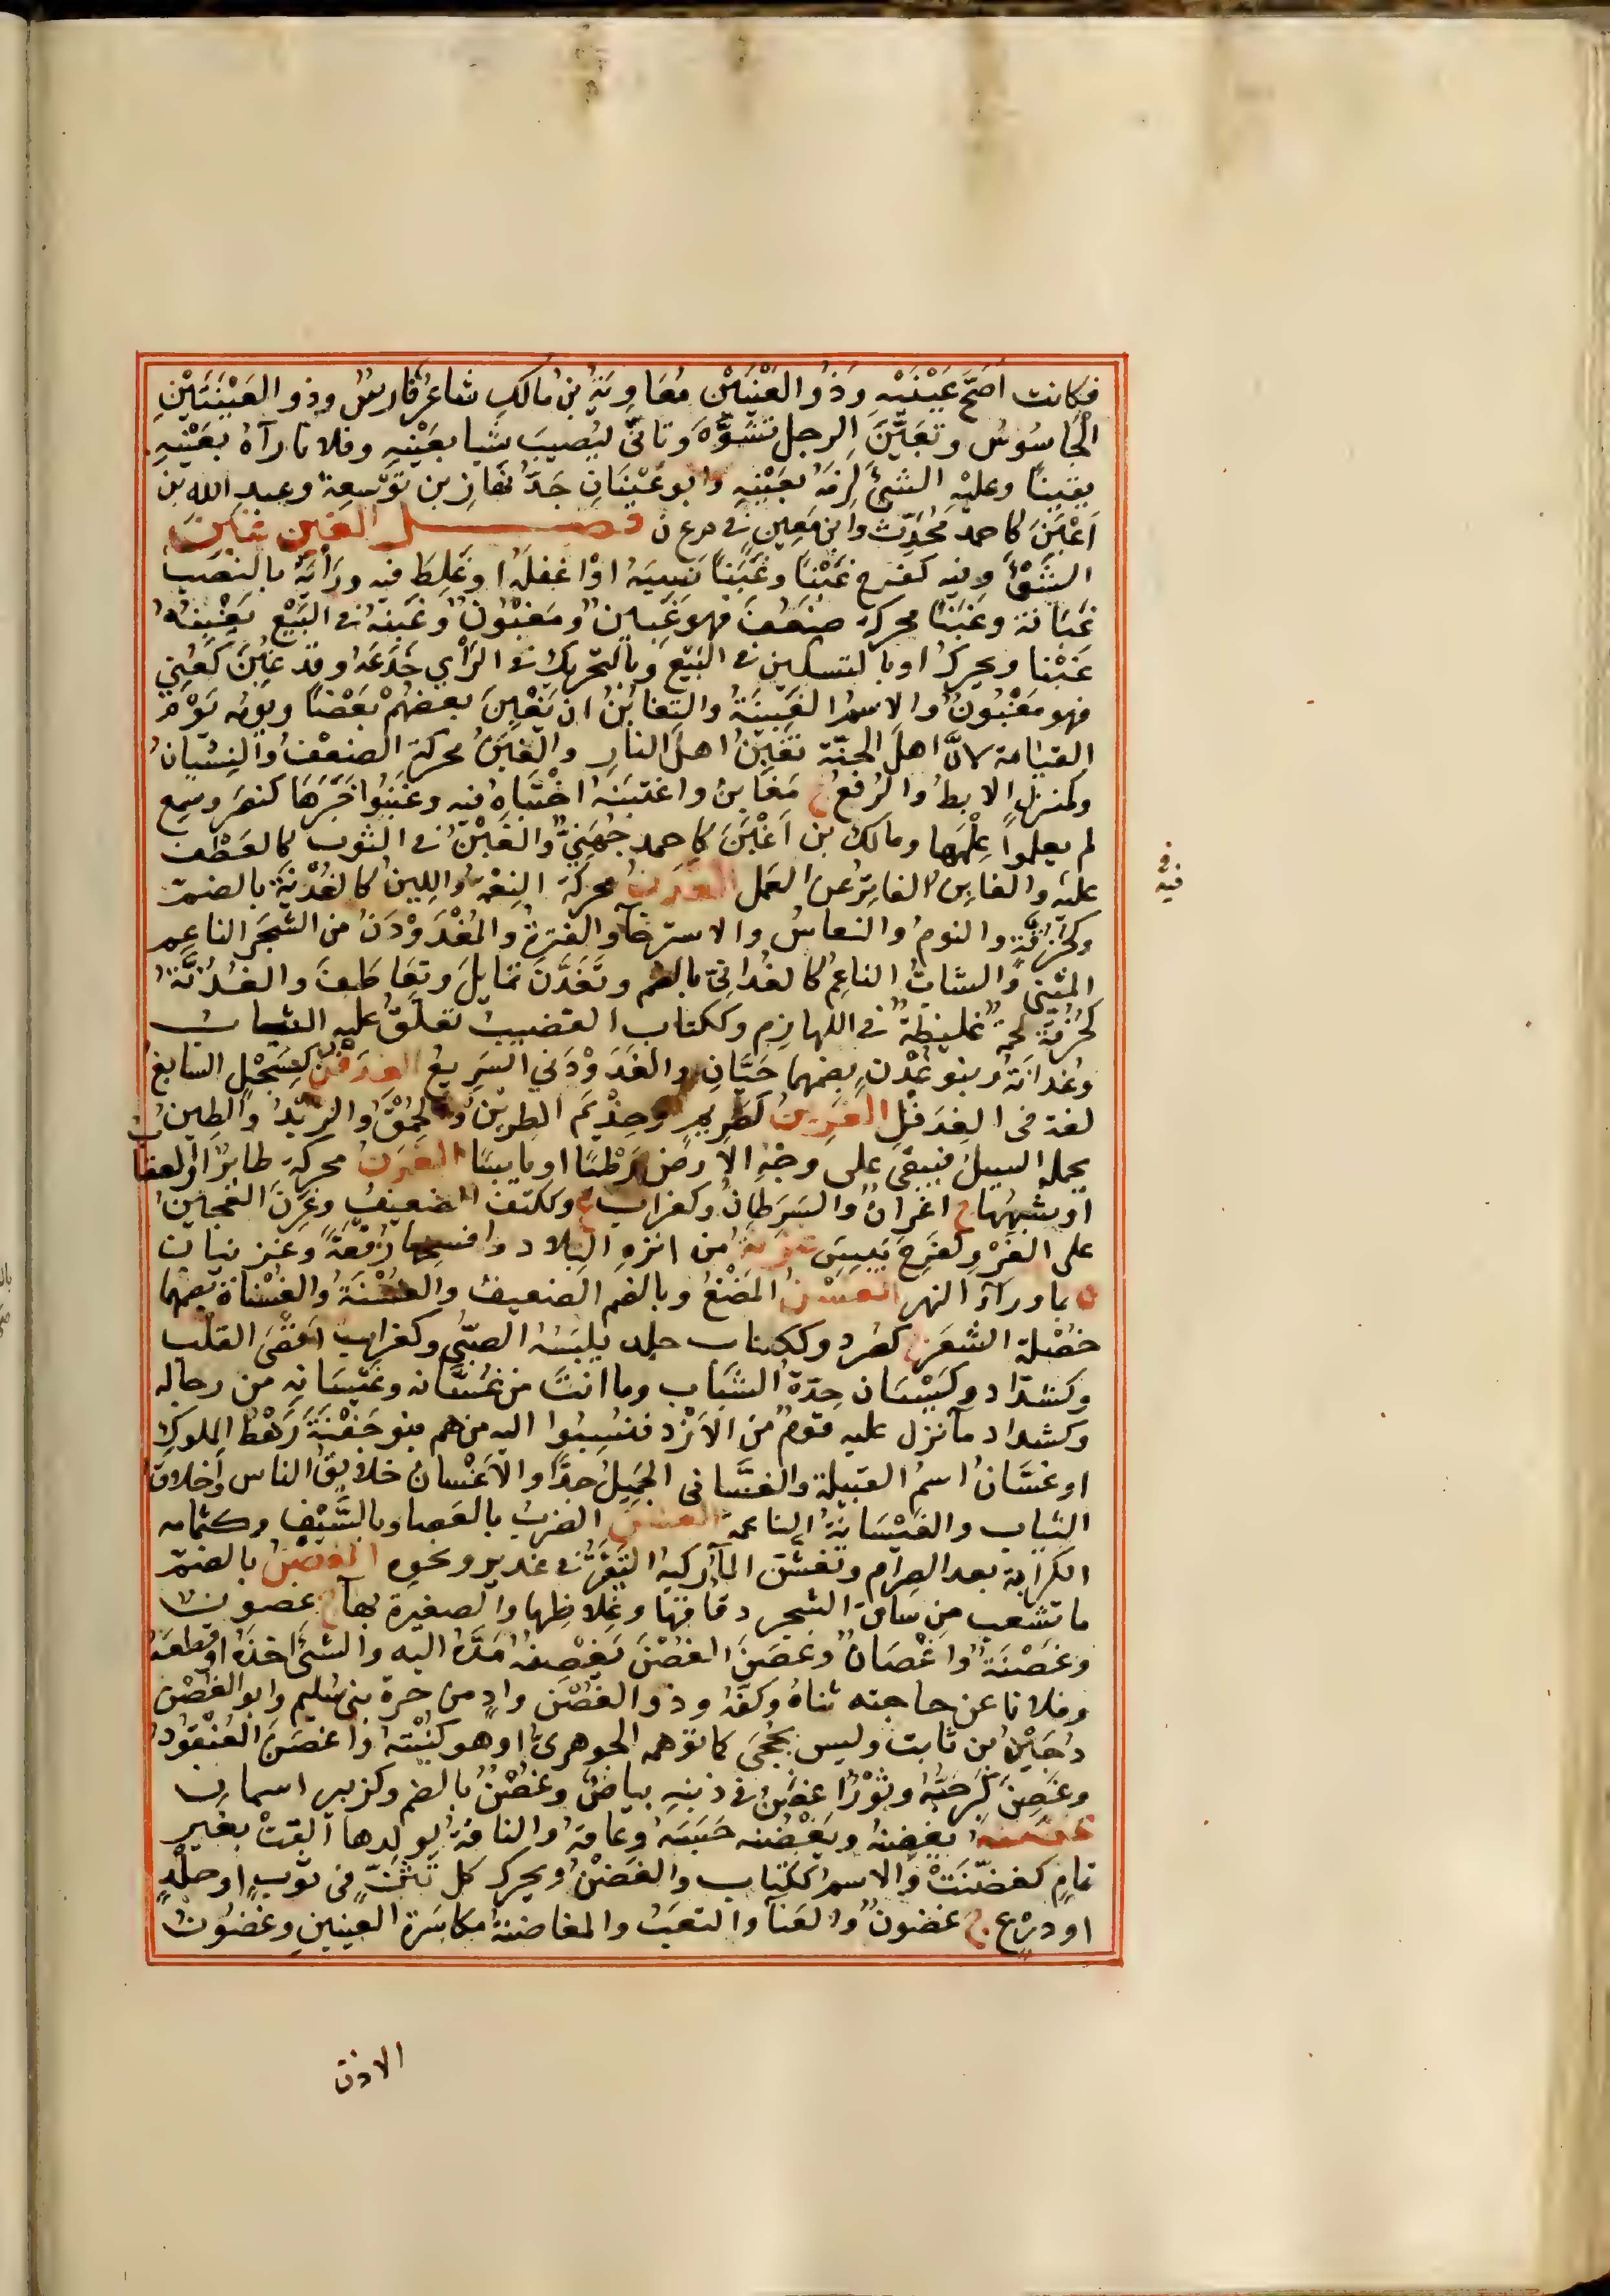 فكانت اَصَحَّ عَيْنَيْهِ وَذُو العَيْنَيْنِ مُعَاوِيَةُ بنُ مَالكٍ شاعرٌ فارسٌ وذو العَيْنَتَيْنِ
الجَاسُوسُ وتَعَيَّنَ الرجل تَشَوَّهَ وتانّى ليُصيبَ شيا بعَيْنِهِ وفلانا رآهُ بعَيْنِهِ
يقينًا وعليْهِ الشئُ لزمَهُ بعَيْنِهِ وابو عَيْنَانِ جَدُّ نَهَارِ بن تَوْسِعَةَ وعبد الله بن
اَعْيَنَ كاحمد مُحَدِّث وابن مَعِينٍ في م ع ن فصل الغين غَبَنَ
الشئَ وفيه كفرح غَبْنًا وغَبَنًا نَسِيَهُ اوْ اغفلَهُ اوغَلِطَ فيه ورَاْيَهُ بالنصب
غَبَانة وغَبَنًا محركة ضَعُفَ فهو غَبين ومَغبُونٌ وغَبَنه في البَيْع يَغْبِنُهُ
غَبْنا ويحرك او بالتسكين في البَيْع وَبالتحريك في الرَّاْيِ خَدَعَهُ وقد غُبِنَ كَعُنِيَ
فهو مَغْبُونٌ والاسمُ الغَبِينَةُ والتغابُنُ ان يَغْبِنَ بعضهُمْ بَعْضًا ويومُه يَوْم
القيَامة لانَّ اهلَ الجنّة تَغْبِنُ اهلَ النار والغَبَنُ محركة الضعْفُ والنِسْيانُ
وكمنزل الابطُ والرُفغُ ج مَغَابِنُ واغتبَنَهُ اخْتَبَاهُ فيه وغَبَنُوا خَبَرَهَا كنصَرَ وسمِع
لم يعلموا عِلْمَها ومالك بن اَغْبَنَ كاحمد جُهَنِيٌّ والغَبْنُ في الثوب كالعَطْف
فيه
عليه والغابِنُ الفاتِرُ عن العَمل الغَدَنُ محركة النِعْمَةُ واللِينُ كالغُدْنَةِ بالضمّ
وكحُزُقَّةٍ والنومُ والنعاسُ والاسترخآ والفترةُ والمُغْدَوْدَنُ من الشجَر الناعِم
المتثنى والشابُّ الناعِمُ كالغُدَانِىّ بالضم وتَغَدَّنَ تمايلَ وتعَاطَفَ والغُدُنَّةُ
كحُزُقّة لحمة غَليظَةٌ في اللهازِم وككتاب القضيبُ تُعَلَّقُ عليه الثياب
وغُدَانَةُ وبنو غُدْنٍ بضمهما حَيَّانِ والغَدَوْدَني السَرِيعُ الغِدَفْنُ كسِبَحْلٍ السابغ
لغة في الغِدَفْلِ الغَرِينُ كصَرِيمٍ وحِذْيَم الطِريَنُ والحُمْقُ والزَبَدُ والطينُ
يحمله السيلُ فيبقى على وجْهِ الارضِ رَطْبًا او يابسًا الغَرَنُ محركة طائرٌ او العقاب
او شبهُها ج اغرانٌ والسَرَطانُ وكغراب ع وككتف الضعيفُ وغَرِنَ العَجينُ
على الغَرْوِ كفَرِحَ يَبِسَ غزنة من انزهِ البلاد وافسحها رُقْعَةً وغَزنيان
ة بما ورآءَ النهر الغَسْنُ المَضْغُ وبالضم الضعيفُ والغُسْنَةُ والغُسْناةُ بضمهما
خُصْلَة الشعَر ج كصُرد وككتاب جلد يلبَسُهُ الصبىُّ وكغراب اقْصَى القلب
وكشدّاد وكَيْسان حِدّةُ الشبَاب وما انتَ من غَسَّانِه وغَيْسَانِهِ من رجاله
وكشداد مآ نزل عليه قومٌ منَ الاَزْد فنُسِبُوا اليه منهم بنو جَفْنَةَ رَهْطُ الملوكِ
او غسَّانُ اسمُ القبيلة والغَسَّاني الجَمِيلُ جدًّا والاَغْسانُ خلايقُ الناس واَخلاقُ
الثياب والغَيْسَانَةُ الناعمة الغشن الضربُ بالعَصا وبالسَّيْفِ وكثمامه
الكرابة بعد الصِرام وتَغشَّنَ المآءُ ركبَهُ البَعَرُ في غدير ونحوه الغصْنُ بالضمّ
ما تشعب من ساق الشجر دقاقها وغِلاظِها والصغيرة بهآ ج غصون
وغصَنَةٌ واَغْصَانٌ وغصَنَ الغُصْنَ يَغْصِنُهُ مَدَّهُ اليه والشئَ اخذَهُ اوقطعهُ
وفلانا عن حاجته ثناهُ وكفَّهُ وذو الغُصْن وادٍ من حرة بنى سُليم وابو الغُصْن
دُجَيْنُ بن ثابت وليس بجُحَى كما توهمه الجوهرىُّ او هو كُنْيَتُهُ واَغصَنَ العُنْقودُ
وغَصنَ كَبُرَ حَبُّهُ وثَوْرٌ اغصَنُ في ذَنبِهِ بياضٌ وغُصْنٌ بالضم وكزبير اسمان
غضنه يَغْضِنُهُ ويَغْضُنُه حَبَسَهُ وعاقهُ والناقةُ بولدها اَلقَتْ بغير
تمامٍ كغضّنَتْ والاسمُ ككِتاب والغَضْنُ ويحرك كل تَثَنٍّ في ثَوْبٍ او جِلْدٍ
او دِرْع ج غضونٌ والعَنآ والتعَبُ والمغاضنةُ مكاسَرة العينينِ وغضُونُ
الاذن